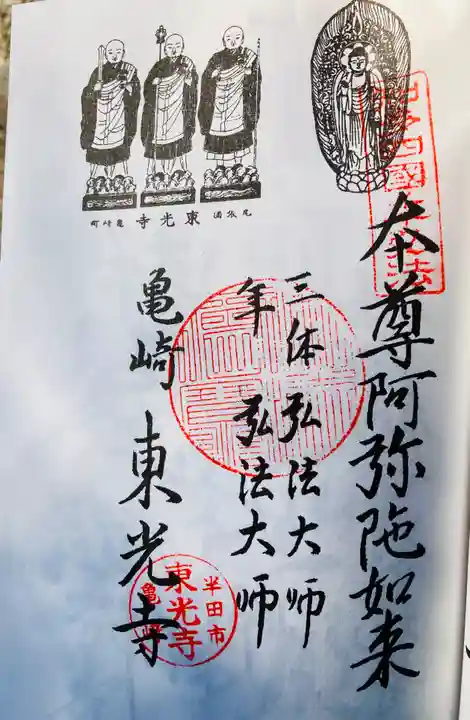 本尊阿弥陀如来
三体弘法大師
年弘法大師
亀崎 東光寺
町崎亀 寺光東 国張尾
半田市
東光寺
亀崎